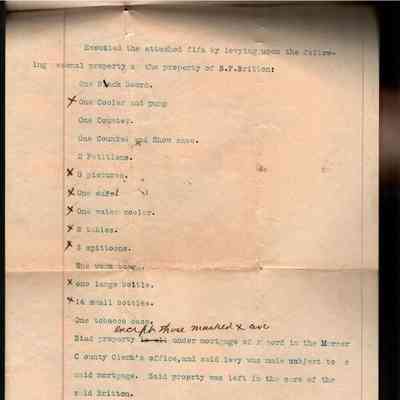 Executed the attached fifa by levying upon the follow-
ing personal property as the property of S.F.Britton:
One Back Board.
x One Cooler and pump
One Counter.
One Counter and Show case.
2 Petitions.
x 8 pictures.
x One safe.
x One water cooler.
x 2 tables.
x 3 spittoons.
One
x one large bottle.
x 14 small bottles.
One tobacco case.
except those marked x are
Said property is all under mortgage of record in the Mercer
County Clerk's office,and said levy was made subject to
said mortgage. Said property was left in the care of the
said Britton.